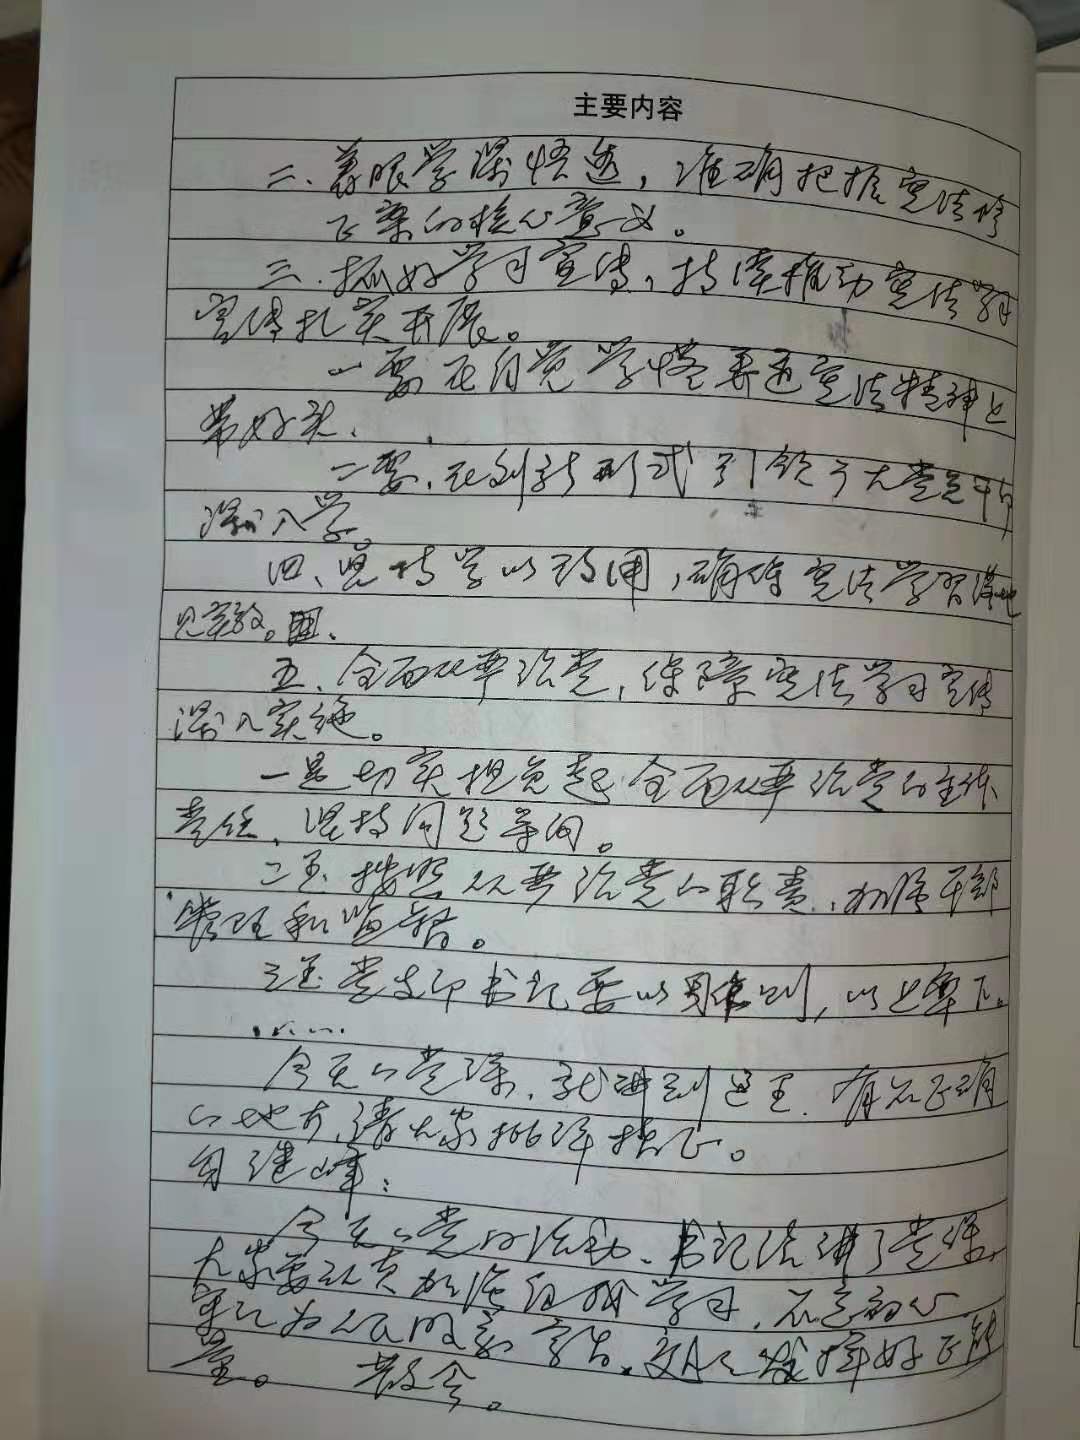 主要内容
二、着眼学深悟透，准确把握宪法修
正案的核心要义。
三、抓好学习宣传，持续推动宪法学习
宣传扎实开展。
一要在自觉学悟弄通宪法精神上
带好头、
二要、在创新形式引领广大党员干部
深入学。
四、坚持学以致用，确保宪法学习落地
见实效。
五、全面从严治党，保障宪法学习宣传
深入实施。
一是切实担负起全面从严治党的主体
责任、坚持问题导向。
二是按照从严治党的职责、加强干部
管理和监督。
三是党支部书记要以身作则，以上率下。
......
今天的党课、就讲到这里、有不正确
的地方、请大家批评指正。
继峰：
今天的党日活动、书记给讲了党课、
大家要认真加强自我学习、不忘初心
牢记为人民服务宗旨、发挥好正能
量。 散会。